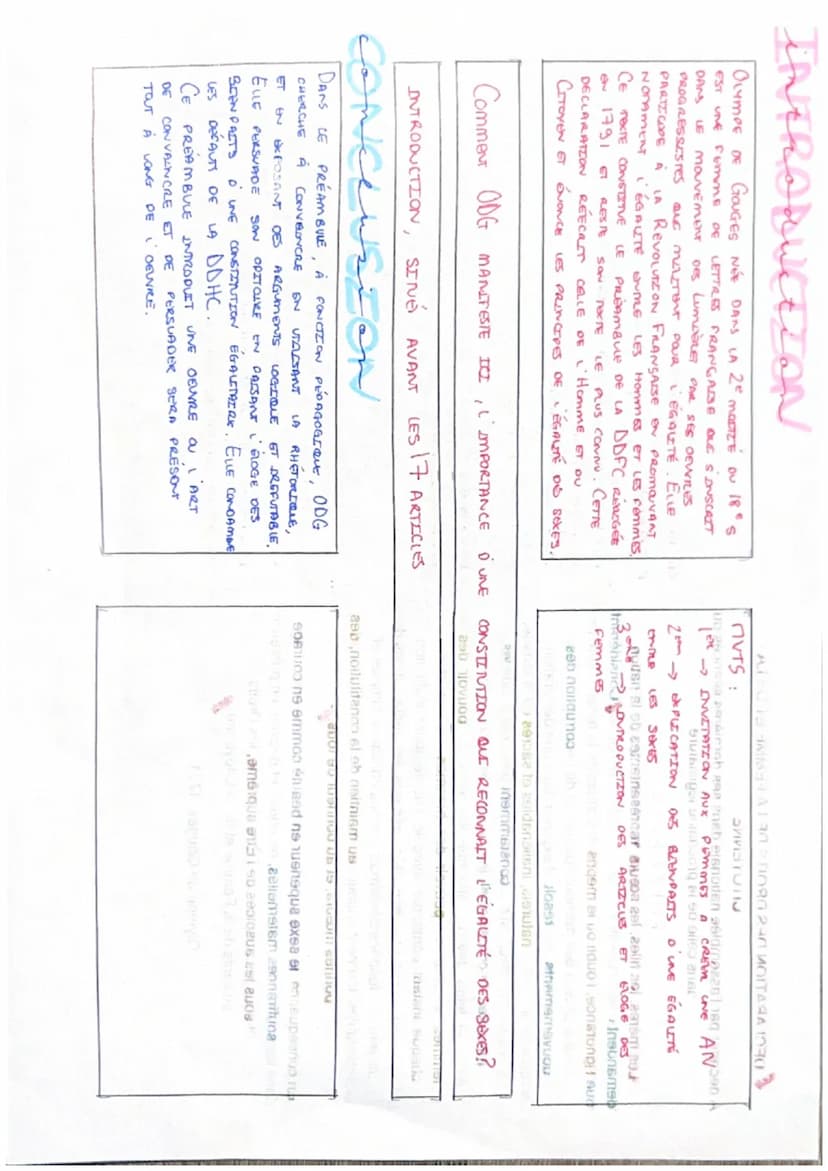 INTRODUCTION
OLYMPE DE GOUGES NÉE DANS LA 2e MOITIÉ DU 18e S
EST UNE FEMME DE LETTRES FRANÇAISE QUI S'INSCRIT
DANS LE MOUVEMENT DES LUMIÈRES PAR SES OEUVRES
PROGRESSISTES QUI MILITENT POUR L'ÉGALITÉ. ELLE
PARTICIPE À LA REVOLUTION FRANÇAISE EN PROMOUVANT
NOTAMMENT L'ÉGALITÉ ENTRE LES HOMMES ET LES FEMMES.
CE TEXTE CONSTITUE LE PRÉAMBULE DE LA DDFC RÉDIGÉE
EN 1791 ET RESTE SON TEXTE LE PLUS CONNU. CETTE
DECLARATION RÉÉCRIT CELLE DE L'HOMME ET DU
CITOYEN ET ÉNONCE LES PRINCIPES DE L'ÉGALITÉ DES SEXES.
MVTS :
1er → INVITATION AUX FEMMES À CRÉER UNE AN
2em → EXPLICATION DES BIENFAITS D'UNE ÉGALITÉ
ENTRE LES SEXES
3eme → INTRODUCTION DES ARTICLES ET ELOGE DES
FEMMES
COMMENT ODG MANIFESTE ICI, L'IMPORTANCE D'UNE CONSTITUTION QUI RECONNAIT L'ÉGALITÉ DES SEXES?
INTRODUCTION, SITUÉ AVANT LES 17 ARTICLES
CONCLUSION
DANS CE PRÉAMBULE, À FONCTION PÉDAGOGIQUE, ODG
CHERCHE À CONVAINCRE EN UTILISANT LA RHÉTORIQUE,
ET EN EXPOSANT DES ARGUMENTS LOGIQUE ET IRREFUTABLE.
ELLE PERSUADE SON ODITOIRE EN FAISANT L'ÉLOGE DES
BIENFAITS D'UNE CONSTITUTION ÉGALITAIRE. ELLE CONDAMNE
LES DÉFAUT DE LA DDHC.
CE PRÉAMBULE INTRODUIT UNE OEUVRE OU L'ART
DE CONVAINCRE ET DE PERSUADER SERA PRÉSENT
TOUT À LONG DE L'OEUVRE.